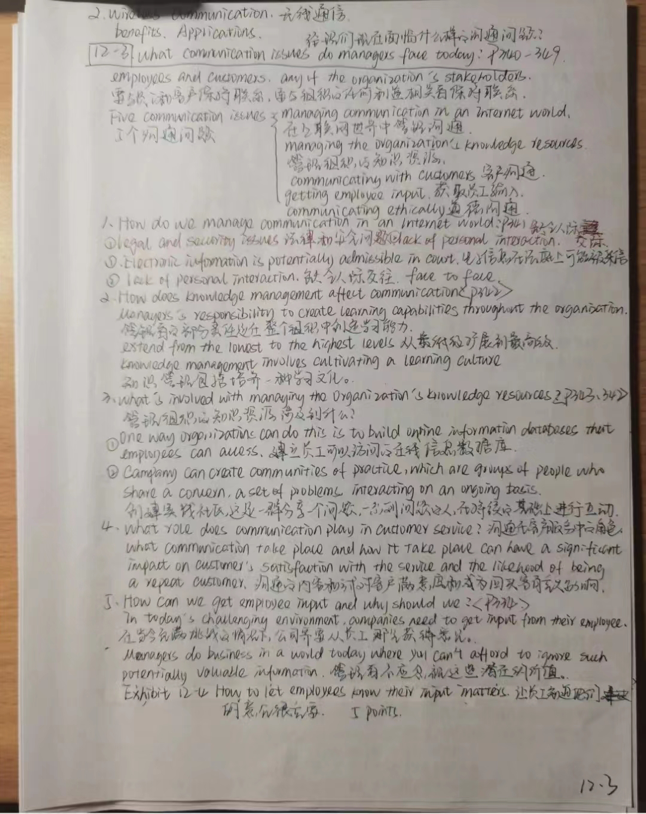 2. Wireless communication. 无线通信
benefits. Applications. 管理者现在面临什么样的沟通问题?
12-3 What communication issues do managers face today? P340-349
employees and customers. any of the organization's stakeholders.
Five communication issues managing communication in an Internet world.
5个沟通问题 在互联网世界中管理沟通
managing the organization's knowledge resources
管理组织的知识资源
communicating with customers 客户沟通
getting employee input 获取员工输入
communicating ethically 道德沟通
1. How do we manage communication in an Internet world
① legal and security issues 法律和安全问题 lack of personal interaction.
② Electronic information is potentially admissible in court.
③ lack of personal interaction. 缺乏人际交往. face to face
2. How does knowledge management affect communication
Managers's responsibility to create learning capabilities throughout the organization.
extend from the lowest to the highest levels 从最低级扩展到最高级
knowledge management involves cultivating a learning culture
知识管理包括培养一种学习文化。
3. what is involved with managing the organization's knowledge resources? P343.344
管理组织的知识资源涉及到什么?
① One way organizations can do this is to build online information databases that
employees can access. 建立员工可以访问的在线信息数据库
② Company can create communities of practice, which are groups of people who
share a concern, a set of problems interacting on an ongoing basis.
创建实践社区,这是一群分享一个问题,一系列问题的人,在持续的基础上进行互动.
4. What role does communication play in customer service? 沟通在客户服务中的角色
what communication take place and how it take place can have a significant
impact on customer's satisfaction with the service and the likelihood of being
a repeat customer.
5. How can we get employee input and why should we?
In today's challenging environment, companies need to get input from their employee.
Managers do business in a world today where you can't afford to ignore such
potentially valuable information.
Exhibit 12-4 How to let employees know their input matters
5 points.
12-3